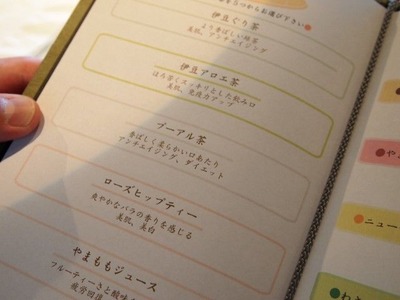 を5つからお選び下さい
伊豆ぐり茶
より香ばしい緑茶
美肌、アンチエイジング
伊豆アロエ茶
ほろ苦くスッキリとした飲み口
美肌、免疫力アップ
プーアル茶
香ばしく柔らかい口あたり
アンチエイジング、ダイエット
ローズヒップティー
爽やかなバラの香りを感じる
美肌、美白
やまももジュース
フルーティーさと酸味
疲労回復
や
ニュー
ねっ